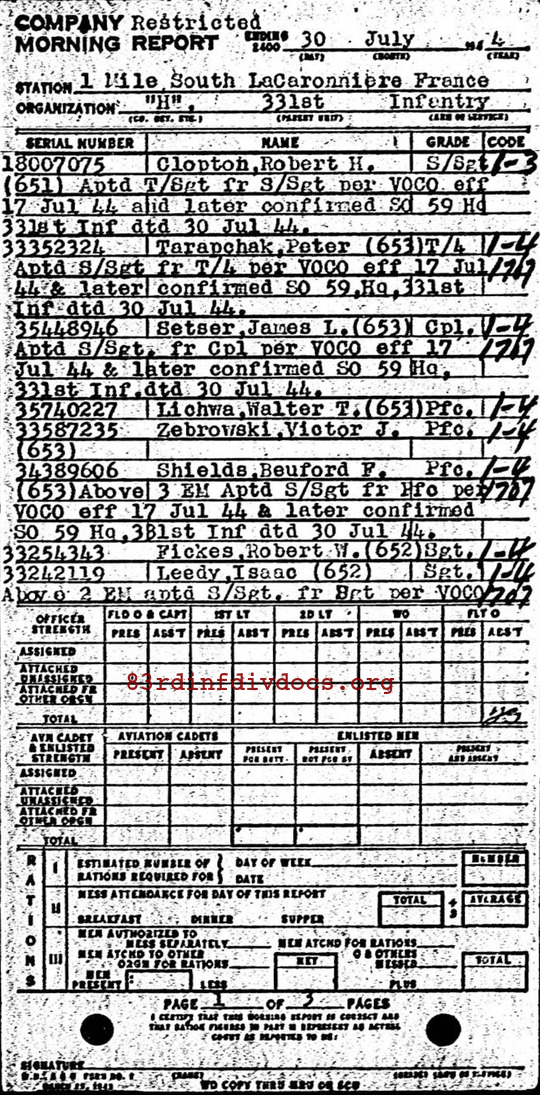 COMPANY Restricted
MORNING REPORT ENDING 2400 30 July 194 4
(DAY) (MONTH) (YEAR)
STATION 1 Mile South LaCaronniere France
ORGANIZATION "H". 331st Infantry
(CO. DET. ETC.) (PARENT UNIT) (ARM OR SERVICE)
SERIAL NUMBER NAME GRADE CODE
18007075 Clopton,Robert H. S/Sgt 1-3
(651) Aptd T/Sgt fr S/Sgt per VOCO eff
17 Jul 44 and later confirmed SO 59 Hq
331st Inf dtd 30 Jul 44.
33352324 Tarapchak,Peter (653)T/4 1-4
Aptd S/Sgt fr T/4 per VOCO eff 17 Jul 1707
44 & later confirmed SO 59,Hq,331st
Inf dtd 30 Jul 44.
35448946 Setser,James L.(653) Cpl. 1-4
Aptd S/Sgt. fr Cpl per VOCO eff 17 1707
Jul 44 & later confirmed SO 59 Hq,
331st Inf.dtd 30 Jul 44.
35740227 Lichwa,Walter T.(653)Pfc. 1-4
33587235 Zebrowski,Victor J. Pfc. 1-4
(653)
34389606 Shields,Beuford F. Pfc. 1-4
(653)Above 3 EM Aptd S/Sgt fr Pfc per 1707
VOCO eff 17 Jul 44 & later confirmed
SO 59 Hq,331st Inf dtd 30 Jul 44.
33254343 Fickes,Robert W.(652)Sgt. 1-4
33242119 Leedy,Isaac (652) Sgt. 1-4
Above 2 EM aptd S/Sgt. fr Sgt per VOCO 1707
OFFICER STRENGTH FLD O & CAPT 1ST LT 2D LT WO FLT O
PRES ABS'T PRES ABS'T PRES ABS'T PRES ABS'T PRES ABS'T
ASSIGNED
ATTACHED UNASSIGNED
ATTACHED FR OTHER ORGN
83rdinfdivdocs.org
TOTAL
AVN CADET & ENLISTED STRENGTH AVIATION CADETS ENLISTED MEN
PRESENT ABSENT PRESENT FOR DUTY PRESENT NOT FOR DY ABSENT PRESENT AND ABSENT
ASSIGNED
ATTACHED UNASSIGNED
ATTACHED FR OTHER ORGN
TOTAL
RATIONS
I ESTIMATED NUMBER OF RATIONS REQUIRED FOR DAY OF WEEK DATE NUMBER
II MESS ATTENDANCE FOR DAY OF THIS REPORT TOTAL ÷ 3 AVERAGE
BREAKFAST DINNER SUPPER
III MEN AUTHORIZED TO MESS SEPARATELY MEN ATCHD FOR RATIONS
MEN ATCHD TO OTHER ORGN FOR RATIONS NET & OTHERS MESSED TOTAL
MEN PRESENT LESS PLUS
PAGE 1 OF 3 PAGES
I CERTIFY THAT THIS MORNING REPORT IS CORRECT AND
THAT RATION FIGURES IN PART II REPRESENT AN ACTUAL
COUNT AS REPORTED TO ME:
SIGNATURE
W.D., A G O FORM NO. 1 (NAME)
MARCH 15, 1943 WD COPY THRU MRU OR SCU